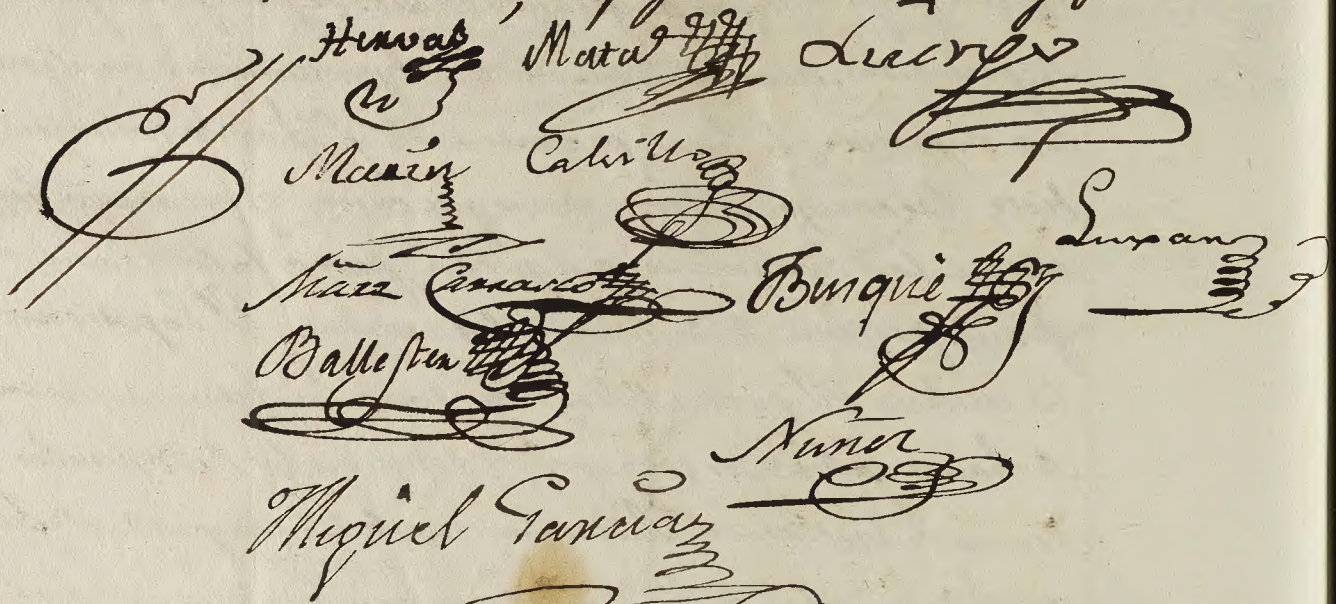 Hervas Mata
Marin Calvillo
Luxan
Carrasco Burque
Ballester
Nuñez
Miguel Garcia